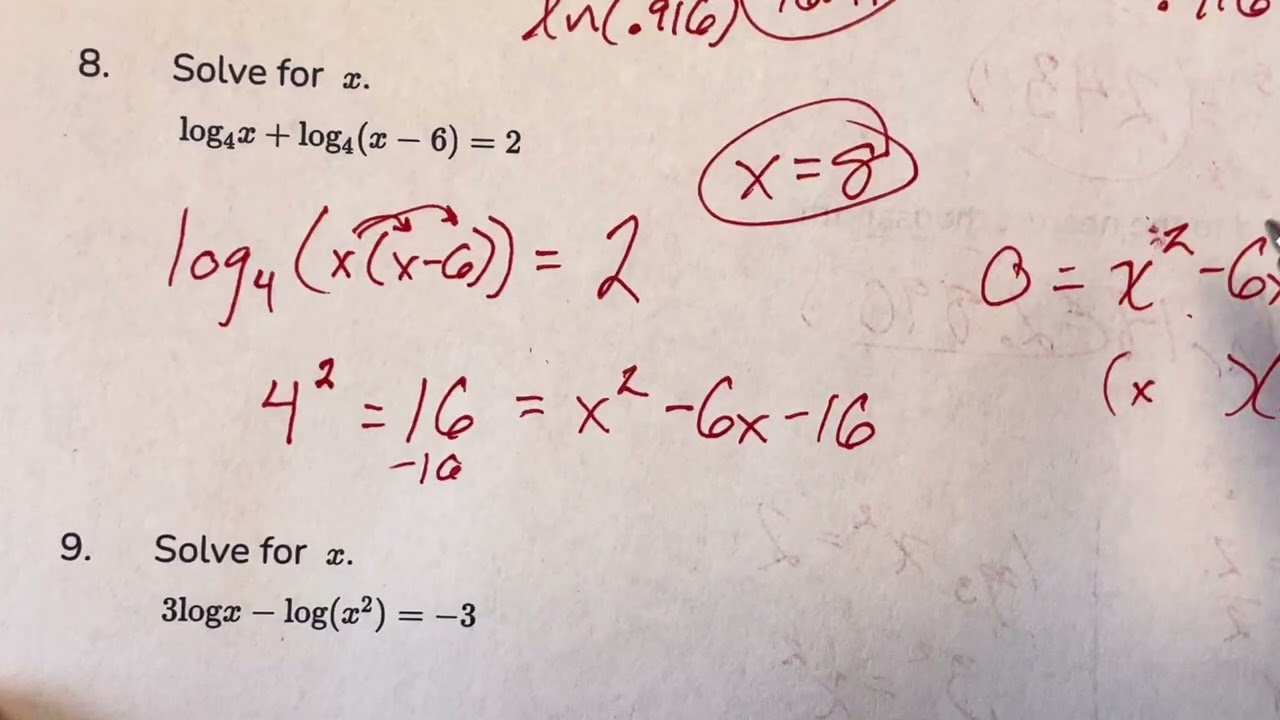 ln(.916)
8. Solve for x.
log₄x + log₄(x − 6) = 2
x = 8
log₄(x(x-6)) = 2
0 = x² - 6x
4² = 16 = x² - 6x - 16
-16
(x X
9. Solve for x.
3logx − log(x²) = −3